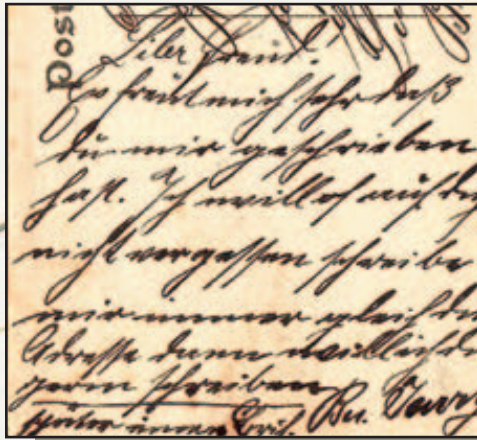 Post
Liber Freund!
Es freut mich sehr daß
du mir geschrieben
hast. Ich will auch
nicht vergessen schreibe
mir immer gleich
Adresse dann will ich
gern schreiben
später einen